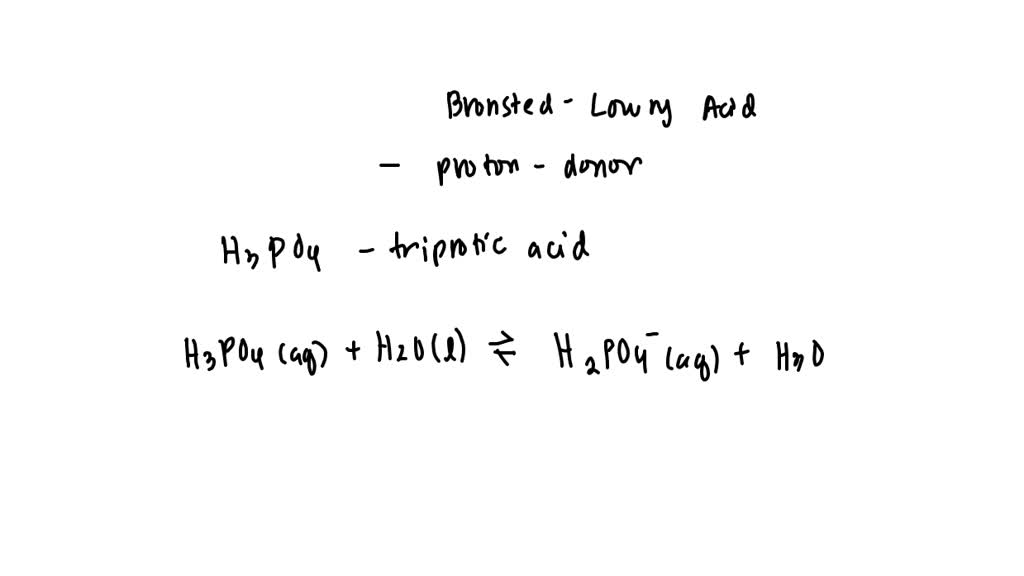 Bronsted - Lowry Acid
- proton - donor
H₃PO₄ - triprotic acid
H₃PO₄ (aq) + H₂O(l) ⇌ H₂PO₄⁻ (aq) + H₃O